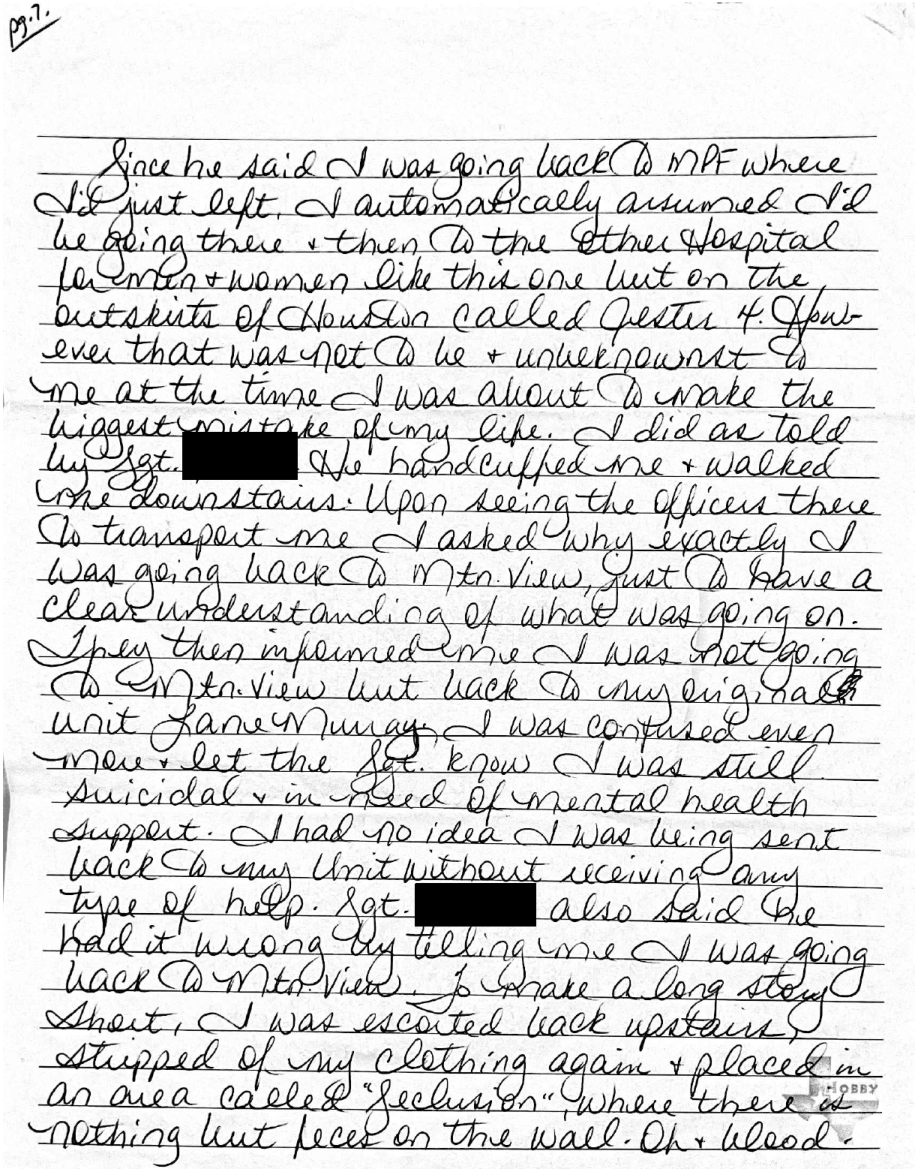 pg.7.
Since he said I was going back to MPF where
I'd just left, I automatically assumed I'd
be going there + then to the other Hospital
for men + women like this one but on the
outskirts of Houston called Jester 4. How-
ever that was not to be + unbeknownst to
me at the time I was about to make the
biggest mistake of my life. I did as told
by Sgt. He handcuffed me + walked
me downstairs. Upon seeing the officers there
to transport me I asked why exactly I
was going back to Mtn. View, just to have a
clear understanding of what was going on.
They then informed me I was not going
to Mtn. View but back to my original
unit Lane Murray. I was confused even
more + let the Sgt. know I was still
suicidal + in need of mental health
support. I had no idea I was being sent
back to my Unit without receiving any
type of help. Sgt. also said he
had it wrong by telling me I was going
back to Mtn. View. To make a long story
short, I was escorted back upstairs,
stripped of my clothing again + placed in
an area called "Seclusion", where there is
nothing but feces on the wall. Oh + blood.
HOBBY